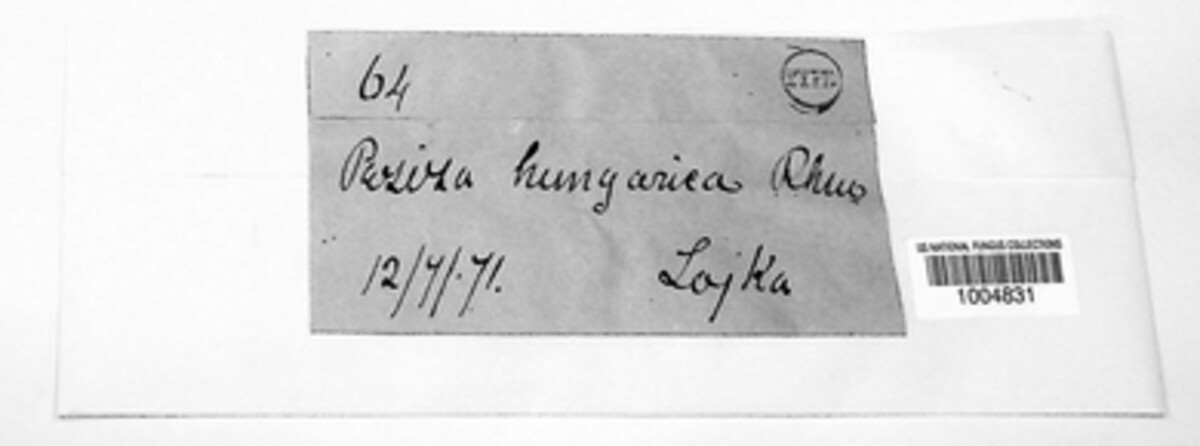 64
Peziza hungarica Rhm
12/7/.71.
Lojka
US NATIONAL FUNGUS COLLECTIONS
1004831